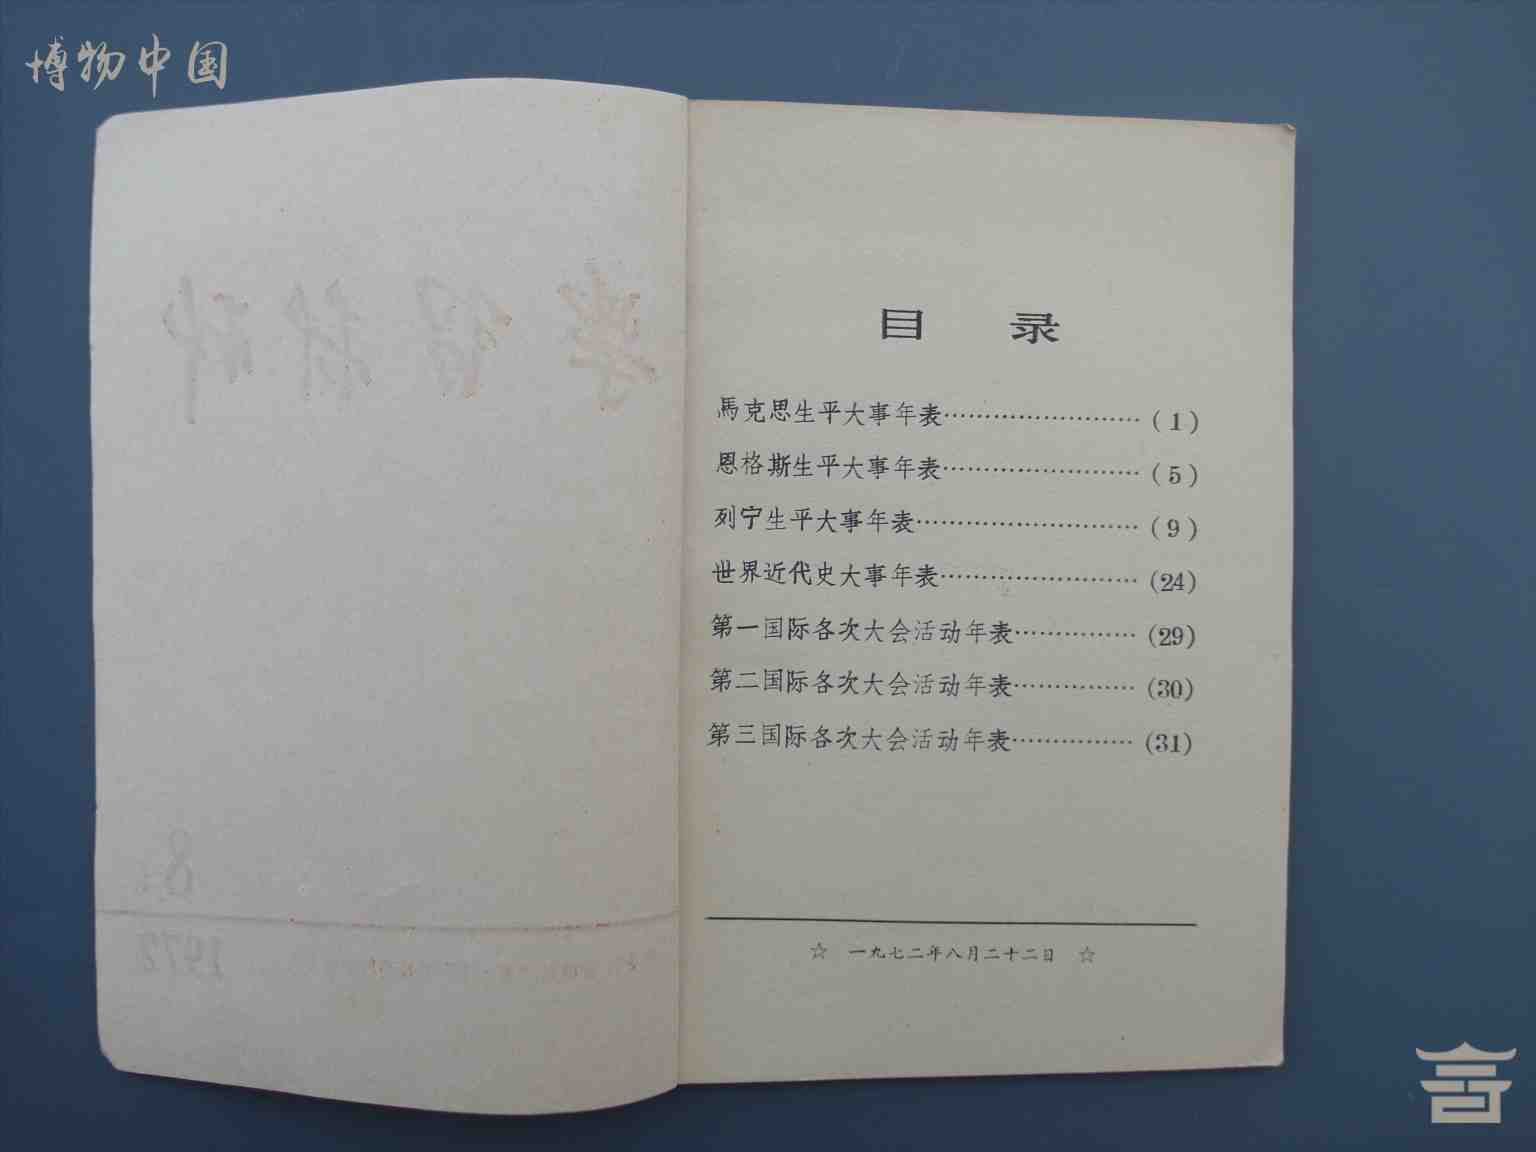 博物中国
学习材料
8
1972
目 录
馬克思生平大事年表……………………(1)
恩格斯生平大事年表……………………(5)
列宁生平大事年表………………………(9)
世界近代史大事年表……………………(24)
第一国际各次大会活动年表……………(29)
第二国际各次大会活动年表……………(30)
第三国际各次大会活动年表……………(31)
☆ 一九七二年八月二十二日 ☆